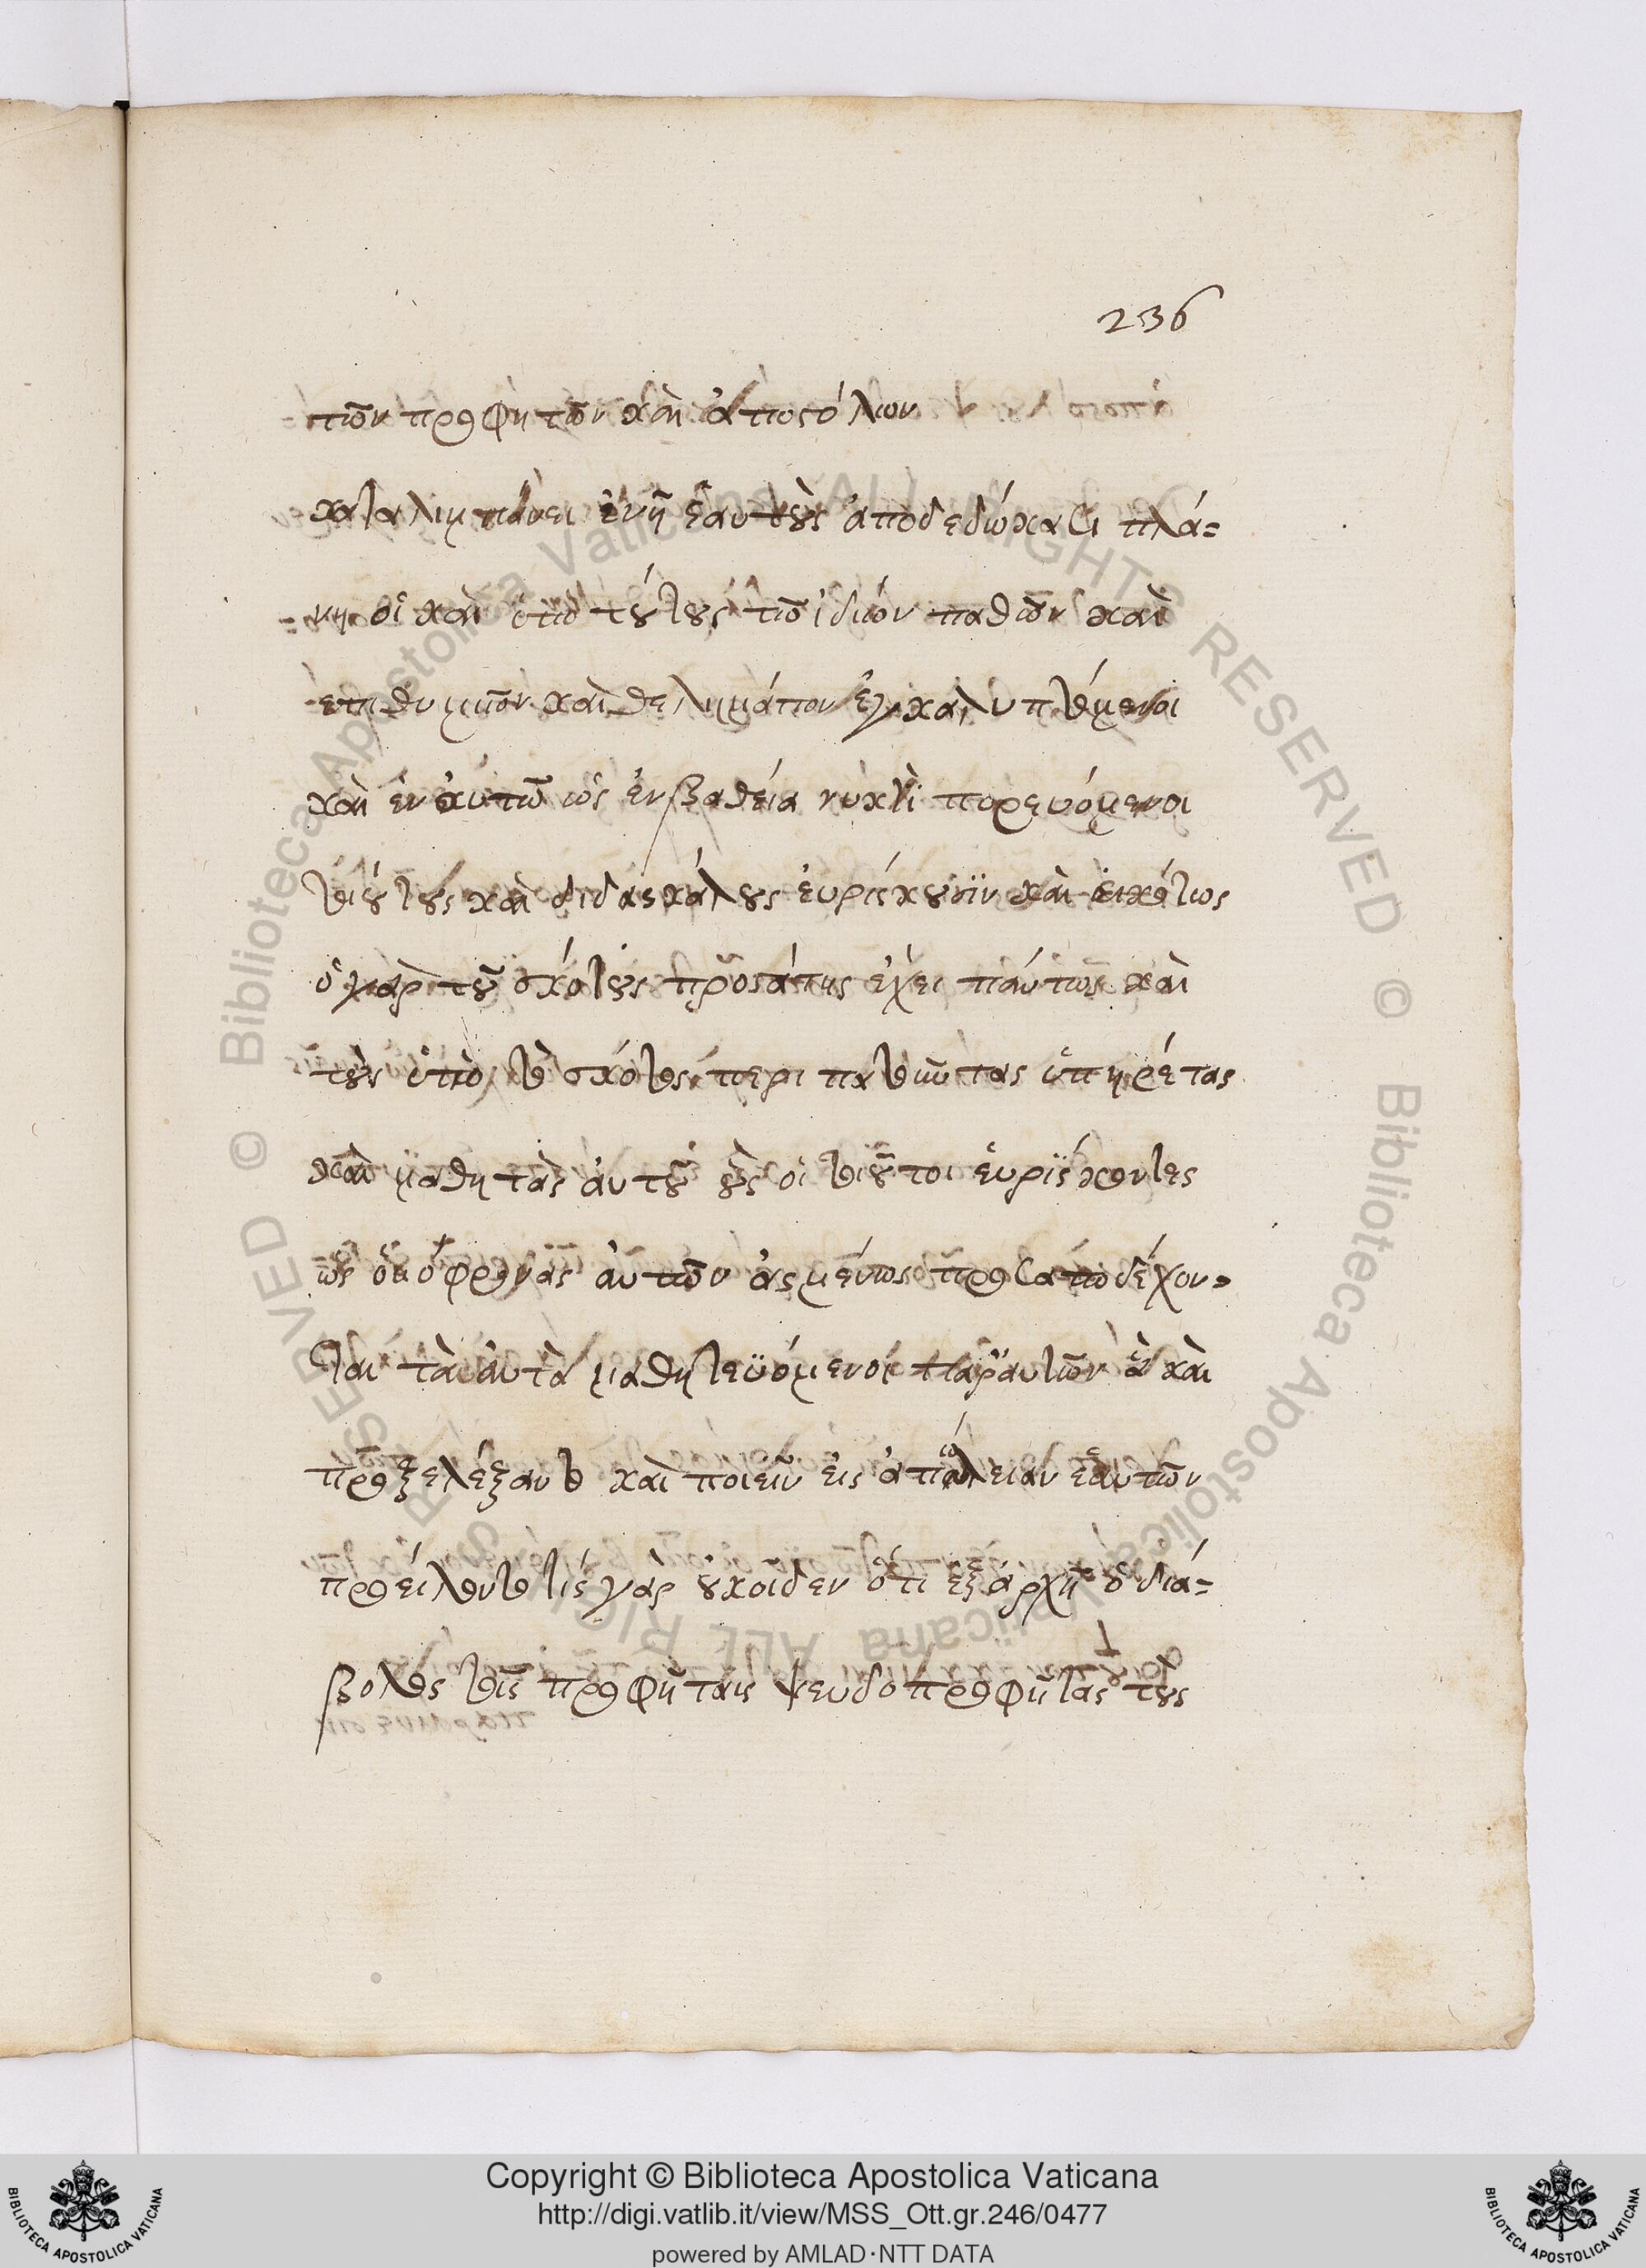 236
τῶν προφητῶν καὶ ἀποστόλων
καταλιμπάνει ἐν ἧ ἑαυτοὺς ἀποδεδώκασι πλά=
=νη οἱ καὶ ὑπὸ τούτους τῶ ἰδιόν παθῶν καὶ
ἐπιθυμιῶν καὶ θελημάτον ἐγκαλυπτόμενοι
καὶ ἐν αὐτῶ ὡς ἐν βαθεία νυκτὶ πορευόμενοι
τοιούτους καὶ διδασκάλους ἑυρίσκουσϊν καὶ ἐικότως
ὁ γὰρ τοῦ σκότους προστάτης ἔχει πάντως καὶ
τοὺς ὑπὸ τὸ σκότος περιπατοῦντας ὑπηρέτας
καὶ μαθητὰς ἀυτοῦ οὓς οἱ τοιοῦτοι ἑυρϊσκοντες
ὡς ὁμόφρονας ἀυτῶν ἀσμένως προσαποδέχον=
ται τὰ ἀυτὰ μαθητεϋόμενοι παρ' αυτῶν ἃ καὶ
προεξελέξαντο καὶ ποιεῖν εις ἀπώλειαν ἑαυτῶν
προείλοντο τίς γὰρ οὐκ οἶδεν ὅτι ἐξ ἀρχῆς ὁ διά=
βολος τοῖς προφήταις ψευδοπροφήτας τοῖς
Copyright © Biblioteca Apostolica Vaticana
http://digi.vatlib.it/view/MSS_Ott.gr.246/0477
powered by AMLAD·NTT DATA
BIBLIOTECA APOSTOLICA VATICANA
BIBLIOTECA APOSTOLICA VATICANA
© Biblioteca Apostolica Vaticana ALL RIGHTS RESERVED © Biblioteca Apostolica Vaticana ALL RIGHTS RESERVED